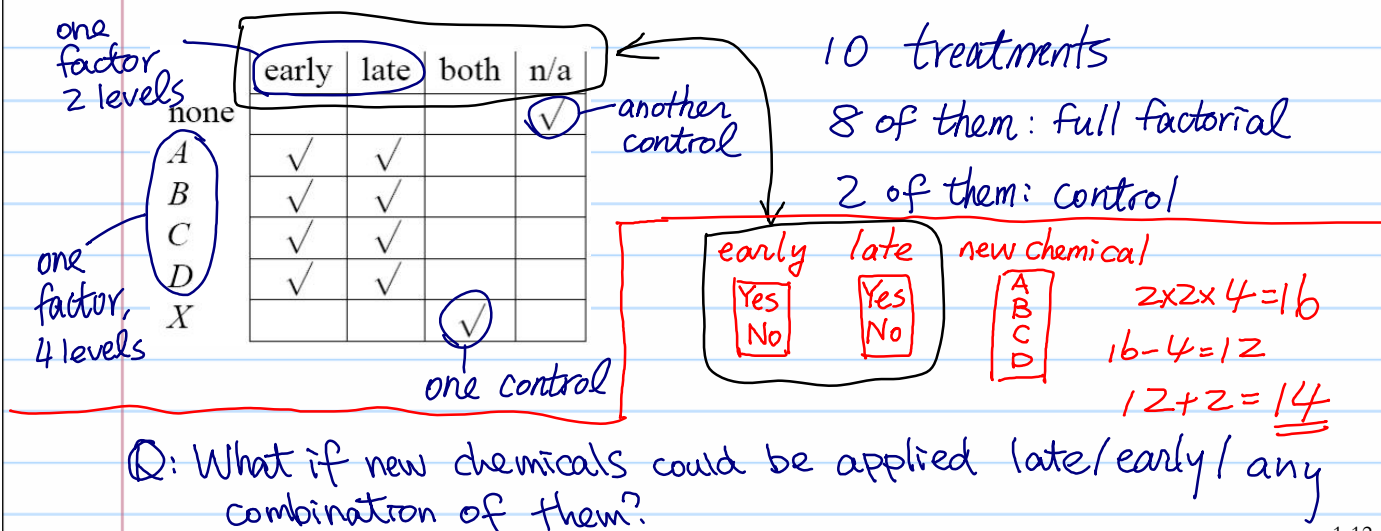 one
factor
2 levels
early late both n/a
none √
A √ √
B √ √
C √ √
D √ √
X √
another
control
one
factor,
4 levels
one control
10 treatments
8 of them: full factorial
2 of them: control
early late new chemical
Yes Yes A
No No B
C
D
2×2×4=16
16-4=12
12+2=14
Q: What if new chemicals could be applied late/early/any
combination of them?